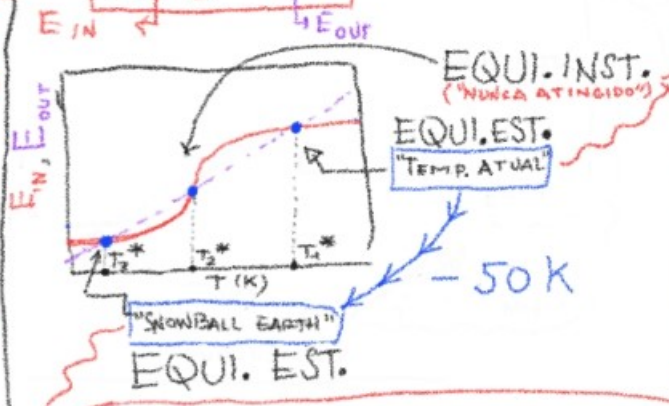 E IN
E OUT
EQUI. INST.
("NUNCA ATINGIDO")
EQUI. EST.
"TEMP. ATUAL"
E IN, E OUT
T₂* T₂* T₁*
T (K)
- 50 K
"SNOWBALL EARTH"
EQUI. EST.